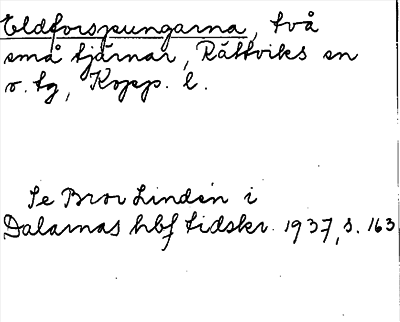 Eldforspungarna, två
små tjärnar, Rättviks sn
o. tg, Kopp. l.
Se Bror Lindén i
Dalarnas hbf tidskr. 1937, s. 163